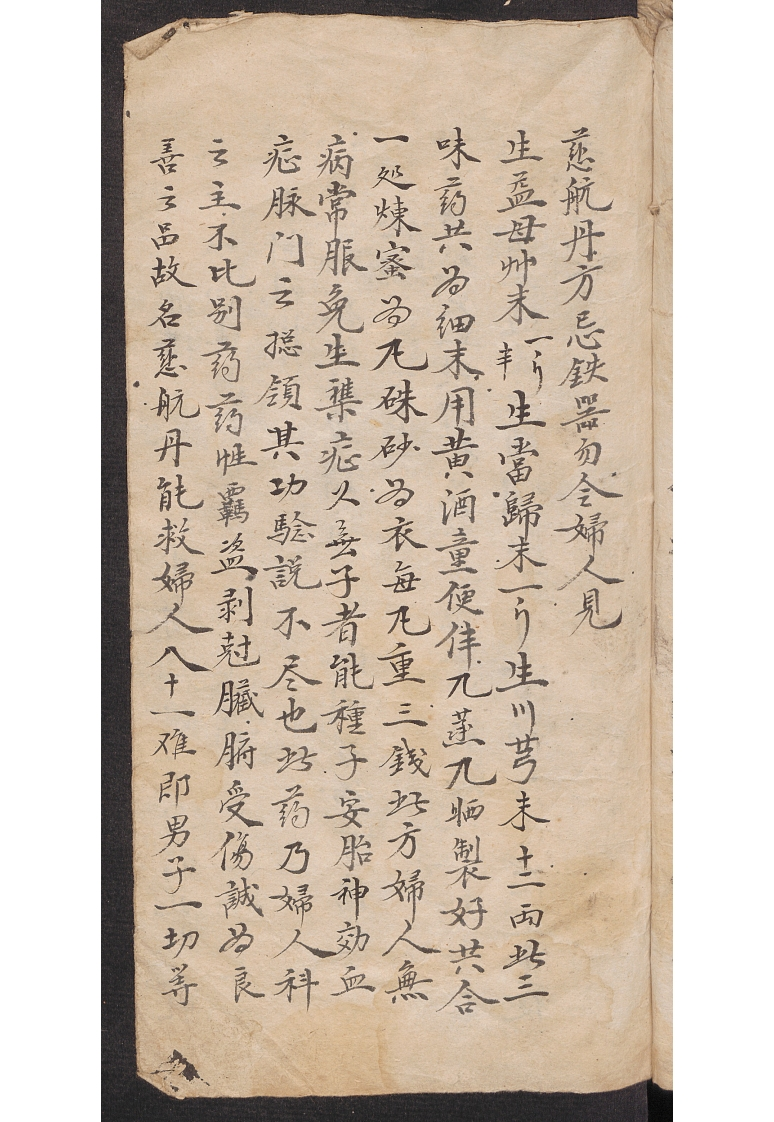 慈航丹方忌鉄器勿令婦人見
生益母艸末一斤半生當歸末一斤生川芎末十二両此三
味药共为細末用黄酒童便伴九蒸九晒製好共合
一处煉蜜为丸硃砂为衣每丸重三錢此方婦人無
病常服免生襍症久無子者能種子安胎神効血
症脉门之搃領其功騐説不尽也此药乃婦人科
之主不比别药药性霸盗剥尅臟腑受傷誠为良
善之品故名慈航丹能救婦人八十一难即男子一切等